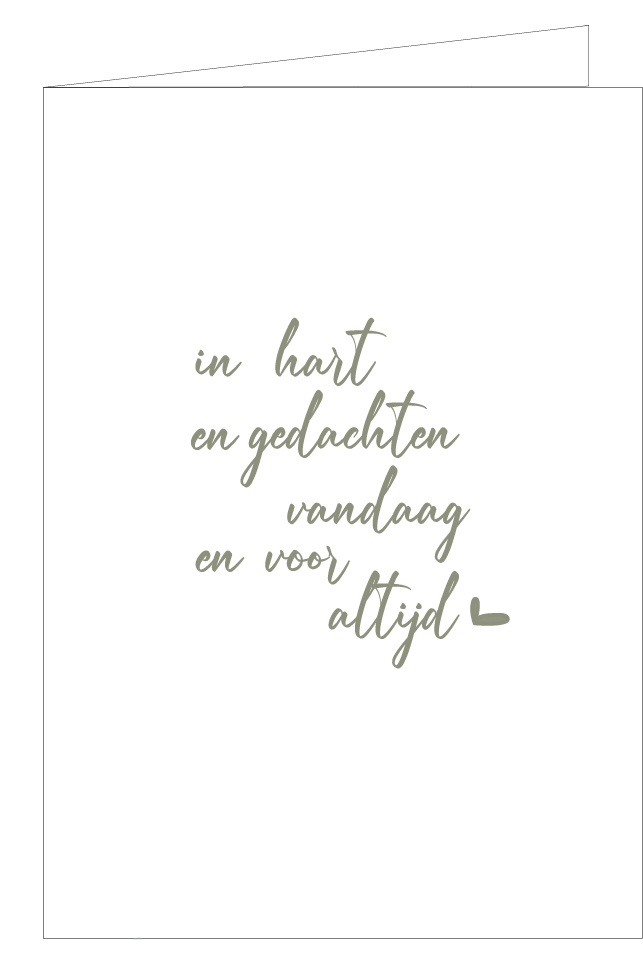 in hart
en gedachten
vandaag
en voor
altijd